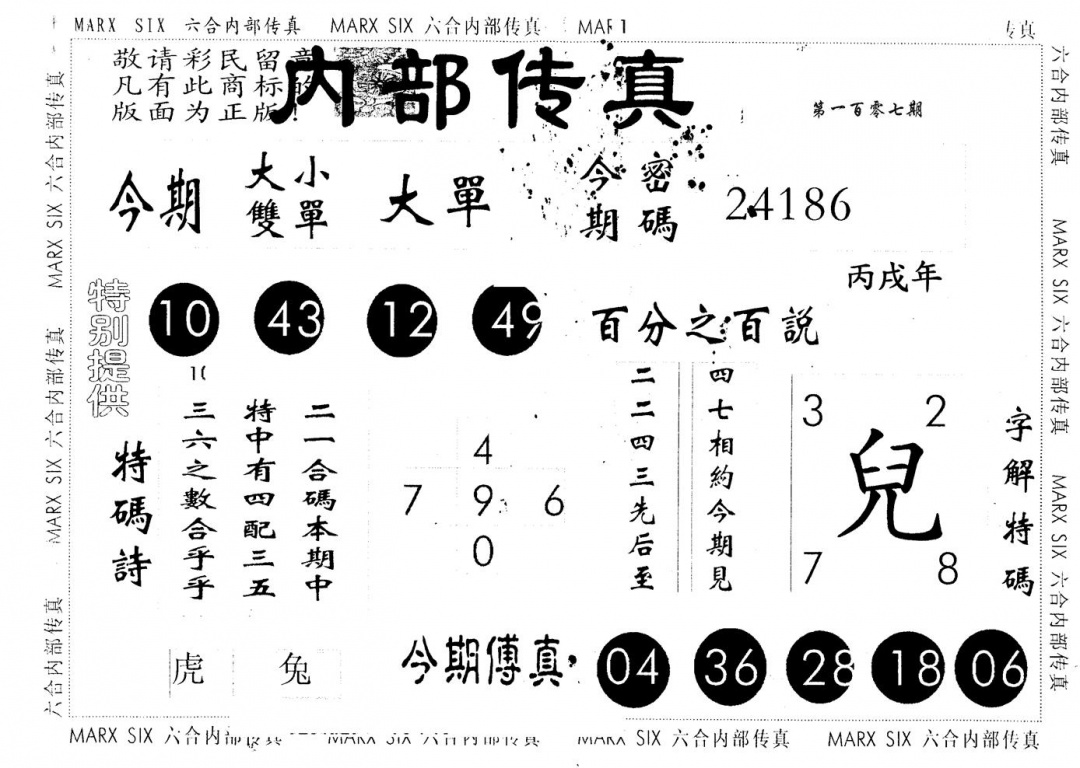 MARX SIX 六合内部传真 MARX SIX 六合内部传真 MAR 1 传真
敬请彩民留意
凡有此商标的
版面为正版!
内部传真
第一百零七期
今期
大小
雙單
大單
今期
密碼
24186
丙戌年
特别提供
10 43 12 49
10
百分之百説
特碼詩
二一合碼本期中
特中有四配三五
三六之數合乎乎
4
7 9 6
0
四七相約今期見
二二四三先后至
3 2
兒
7 8
字解特碼
虎 兔
今期傳真
04 36 28 18 06
六合内部传真
MARX SIX 六合内部传真
MARX SIX 六合内部传真
六合内部传真
六合内部传真
MARX SIX 六合内部传真
MARX SIX 六合内部传真
MARX SIX 六合内部传真 MARX SIX 六合内部传真 MARX SIX 六合内部传真 MARX SIX 六合内部传真